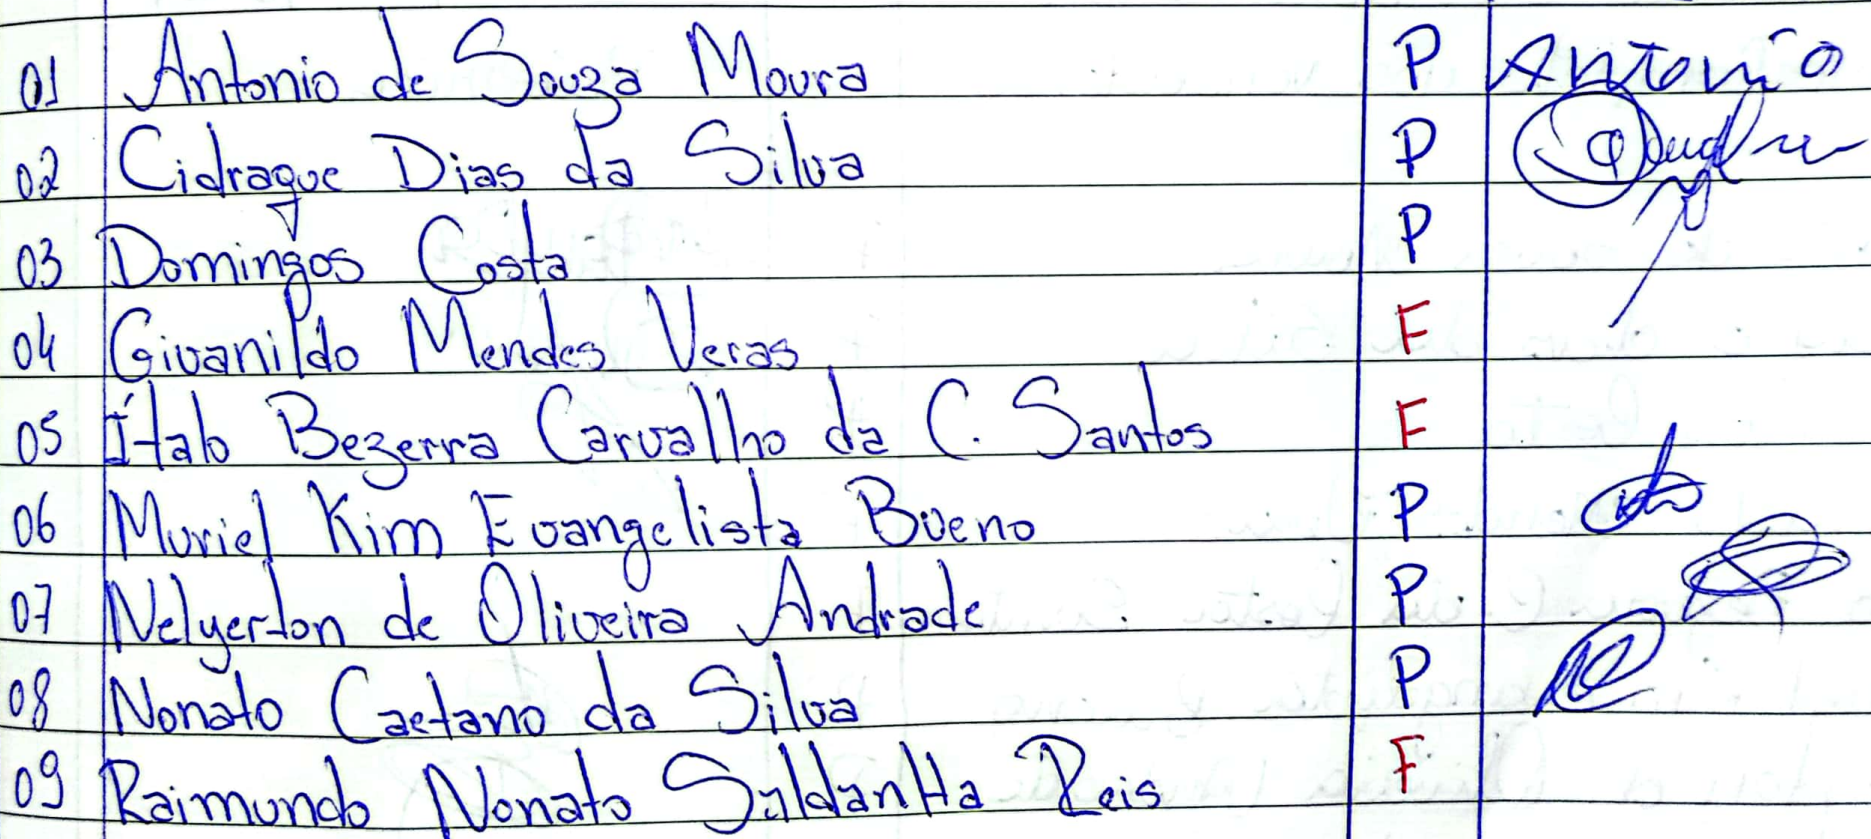 01 Antonio de Souza Moura P Antonio
02 Cidraque Dias da Silva P
03 Domingos Costa P
04 Givanildo Mendes Veras F
05 Ítalo Bezerra Carvalho da C. Santos F
06 Muriel Kim Evangelista Bueno P
07 Nelyerton de Oliveira Andrade P
08 Nonato Caetano da Silva P
09 Raimundo Nonato SaldanHa Reis F